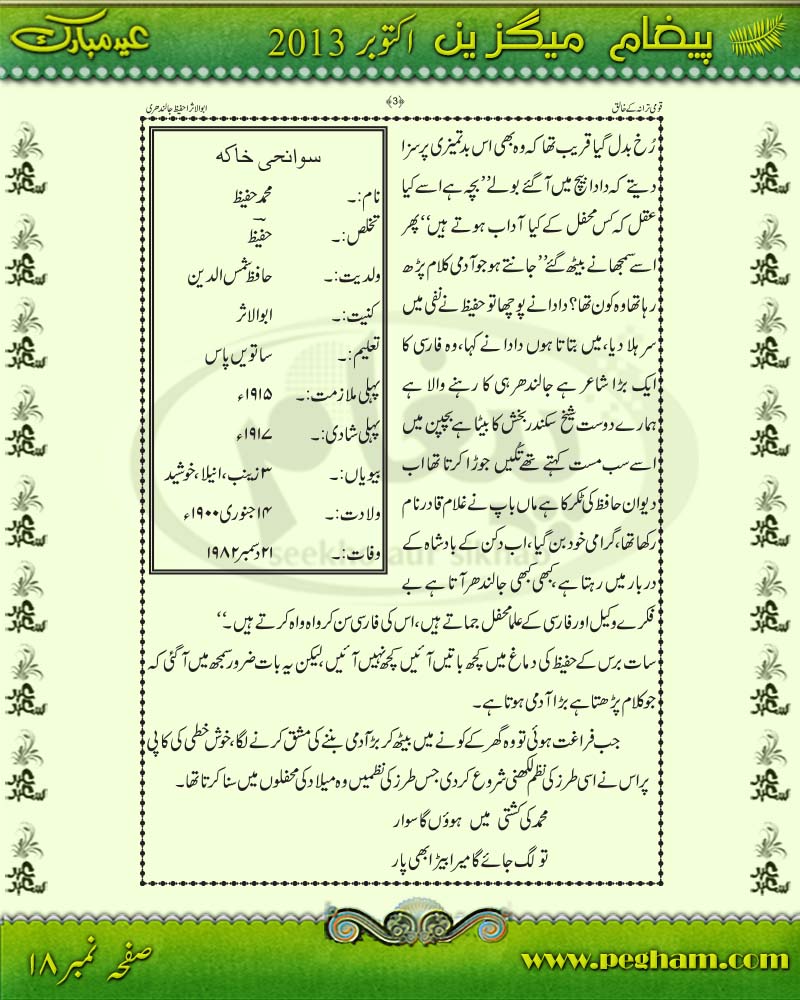 پیغام میگزین اکتوبر 2013
عید مبارک
قومی ترانہ کے خالق
﴿3﴾
ابوالاثر حفیظ جالندھری
رُخ بدل گیا قریب تھا کہ وہ بھی اس بدتمیزی پر سزا
دیتے کہ دادا بیچ میں آگئے بولے ’’بچہ ہے اسے کیا
عقل کہ کس محفل کے کیا آداب ہوتے ہیں‘‘ پھر
اسے سمجھانے بیٹھ گئے ’’جانتے ہو جو آدمی کلام پڑھ
رہا تھا وہ کون تھا؟ دادا نے پوچھا تو حفیظ نے نفی میں
سر ہلا دیا، میں بتاتا ہوں دادا نے کہا، وہ فارسی کا
ایک بڑا شاعر ہے جالندھر ہی کا رہنے والا ہے
ہمارے دوست شیخ سکندر بخش کا بیٹا ہے بچپن میں
اسے سب مست کہتے تھے تُکیں جوڑا کرتا تھا اب
دیوان حافظ کی ٹکر کا ہے ماں باپ نے غلام قادر نام
رکھا تھا، گرامی خود بن گیا، اب دکن کے بادشاہ کے
دربار میں رہتا ہے، کبھی کبھی جالندھر آتا ہے بے
فکرے وکیل اور فارسی کے علما محفل جماتے ہیں، اس کی فارسی سن کر واہ واہ کرتے ہیں۔‘‘
سات برس کے حفیظ کی دماغ میں کچھ باتیں آئیں کچھ نہیں آئیں، لیکن یہ بات ضرور سمجھ میں آگئی کہ
جو کلام پڑھتا ہے بڑا آدمی ہوتا ہے۔
جب فراغت ہوئی تو وہ گھر کے کونے میں بیٹھ کر بڑ آدمی بننے کی مشق کرنے لگا، خوش خطی کی کاپی
پر اس نے اسی طرز کی نظم لکھنی شروع کردی جس طرز کی نظمیں وہ میلاد کی محفلوں میں سنا کرتا تھا۔
محمد کی کشتی میں ہوؤں گا سوار
تو لگ جائے گا میرا بیڑا بھی پار
سوانحی خاکہ
نام:۔ محمد حفیظ
تخلص:۔ حفیظؔ
ولدیت:۔ حافظ شمس الدین
کنیت:۔ ابوالاثر
تعلیم:۔ ساتویں پاس
پہلی ملازمت:۔ ۱۹۱۵ء
پہلی شادی:۔ ۱۹۱۷ء
بیویاں:۔ ۳ زینب، انیلا، خوشید
ولادت:۔ ۱۴ جنوری ۱۹۰۰ء
وفات:۔ ۲۱ دسمبر ۱۹۸۲
پیغام
seekho aur sikhao
صفحہ نمبر ۱۸
www.pegham.com